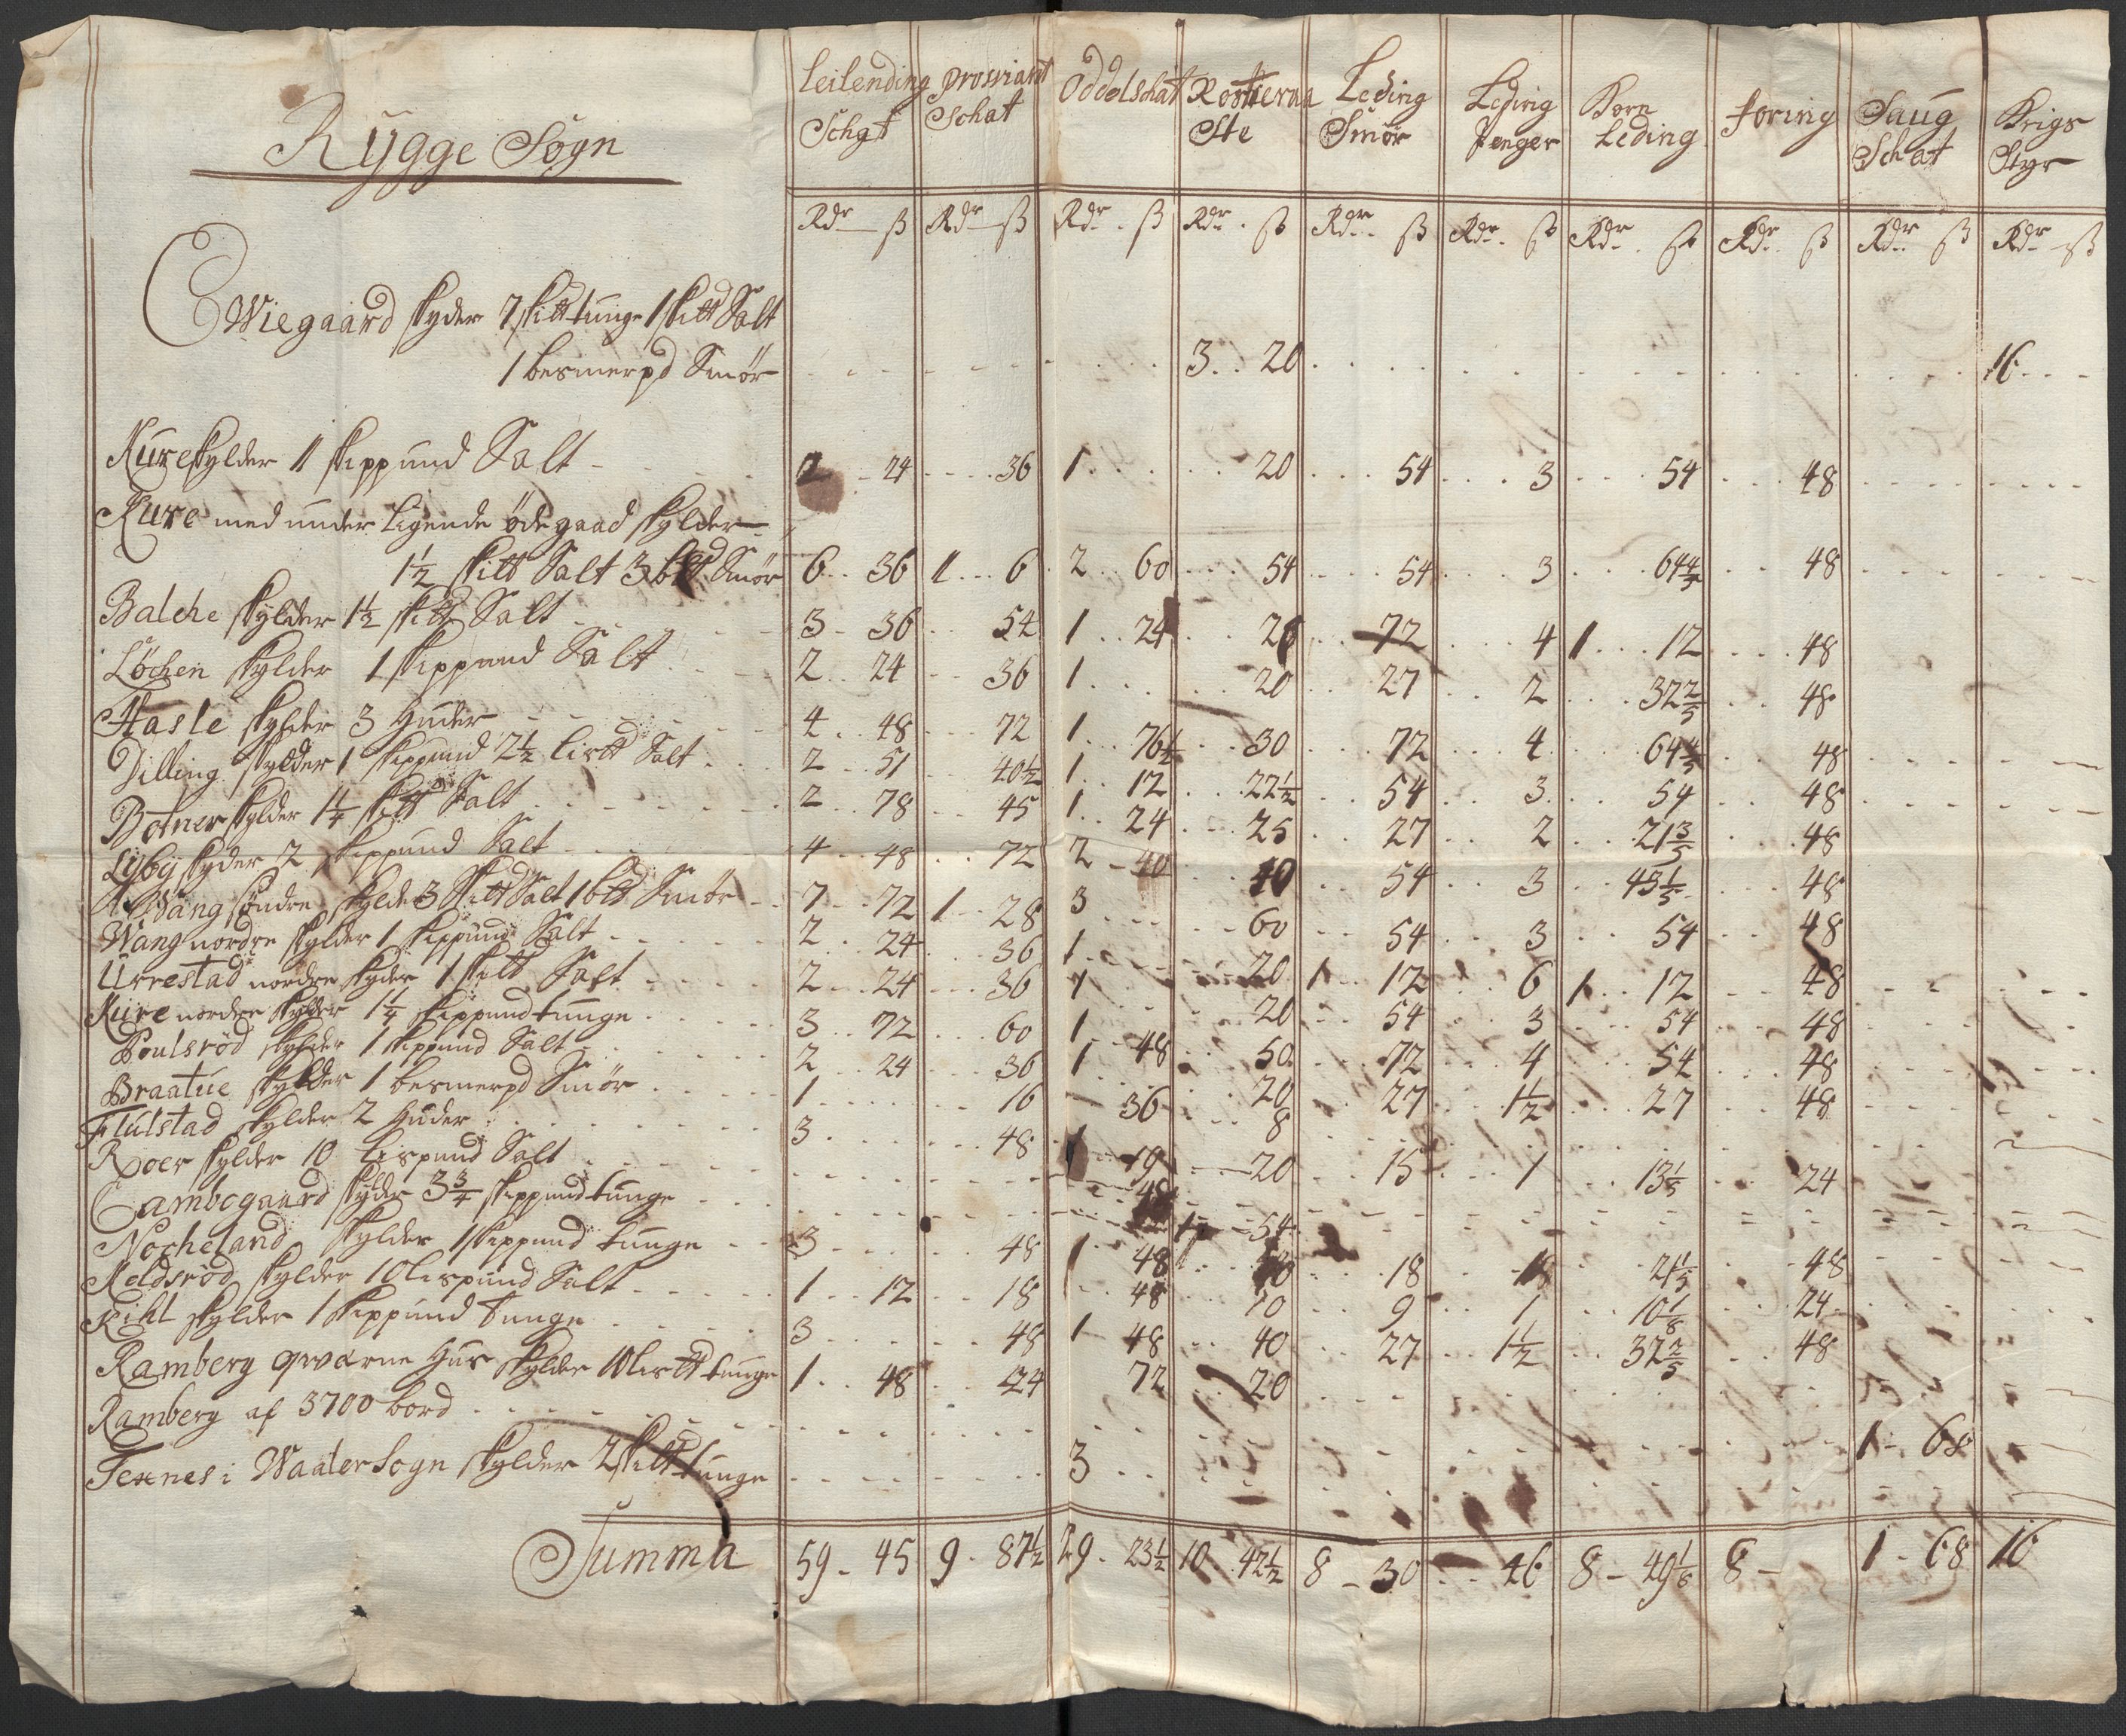 Rÿgge Sogn
Leilending Schat | Proviant Schat | Oddelschat | Rostieneste | Leding Smör | Leding Penger | Korn Leding | foring | Saug Schat | Krigs Styr
Rdr ß | Rdr ß | Rdr ß | Rdr ß | Rdr ß | Rdr ß | Rdr ß | Rdr ß | Rdr ß | Rdr ß
Ewiegaard skyder 7 skittunge 1 skitt Salt
1 besmerpd Smör | 3 . 20 | 16
Kure skylder 1 skippund Salt | 2 - 24 | 36 | 1 | 20 | 54 | 3 | 54 | 48
Kure med under ligende ödegaad skylder
1½ skitt Salt 3 btt Smör | 6 . 36 | 1 . 6 | 2 . 60 | 54 | 54 | 3 | 64⅘ | 48
Balche skylder 1½ skitt Salt | 3 - 36 | 54 | 1 . 24 | 20 | 72 | 4 | 1 . 12 | 48
Löchen skylder 1 skippund Salt | 2 . 24 | 36 | 1 | 20 | 27 | 2 | 32⅖ | 48
Hasle skylder 3 Huder | 4 . 48 | 72 | 1 . 76½ | 30 | 72 | 4 | 64⅘ | 48
Dilling skylder 1 skippund 2½ listt Salt | 2 . 51 | 40½ | 1 . 12 | 22½ | 54 | 3 | 54 | 48
Botner skylder 1¼ skitt Salt | 2 . 78 | 45 | 1 . 24 | 25 | 27 | 2 | 21⅗ | 48
Lÿbÿ skyder 2 skippund Salt | 4 . 48 | 72 | 2 - 40 | 40 | 54 | 3 | 43⅕ | 48
Wang söndre skylde 3 Skitt Salt 1 btt Smör | 7 . 72 | 1 . 28 | 3 | 60 | 54 | 3 | 54 | 48
Wang nordre skylder 1 skippund Salt | 2 . 24 | 36 | 1 | 20 | 1 . 12 | 6 | 1 . 12 | 48
Urrestad nordre skyder 1 skitt Salt | 2 . 24 | 36 | 1 | 20 | 54 | 3 | 54 | 48
Kure nordre skylder 1¼ skippund tunge | 3 . 72 | 60 | 1 . 48 | 50 | 72 | 4 | 54 | 48
Poulsröd skylder 1 skippund Salt | 2 . 24 | 36 | 1 | 20 | 27 | 1½ | 27 | 48
Braatue skylder 1 besmerpd Smör | 1 | 16 | 36 | 8
Flulstad skylder 2 Huder | 3 | 48 | 1 - 19 | 20 | 15 | 1 | 13⅕ | 24
Roer skylder 10 Lispund Salt | 48
Cambogaard skylder 3¾ skippund tunge | 1 - 54
Nocheland skylder 1 skippund tunge | 3 | 48 | 1 . 48 | 40 | 18 | 1 | 21⅕ | 48
Meldsröd skylder 10 lispund Salt | 1 . 12 | 18 | 48 | 10 | 9 | 1 | 10⅛ | 24
Kihl skylder 1 skippund tunge | 3 | 48 | 1 - 48 | 40 | 27 | 1½ | 32⅖ | 48
Ramberg qwærne Hus skylder 10 listt tunge | 1 . 48 | 24 | 72 | 20
Ramberg af 3700 bord | 1 - 68
Texnes i Waaler Sogn skylder 2 skitt tunge | 3
Summa | 59 - 45 | 9 . 87½ | 29 . 23½ | 10 . 42½ | 8 - 30 | 46 | 8 - 49⅛ | 8 - | 1 - 68 | 16